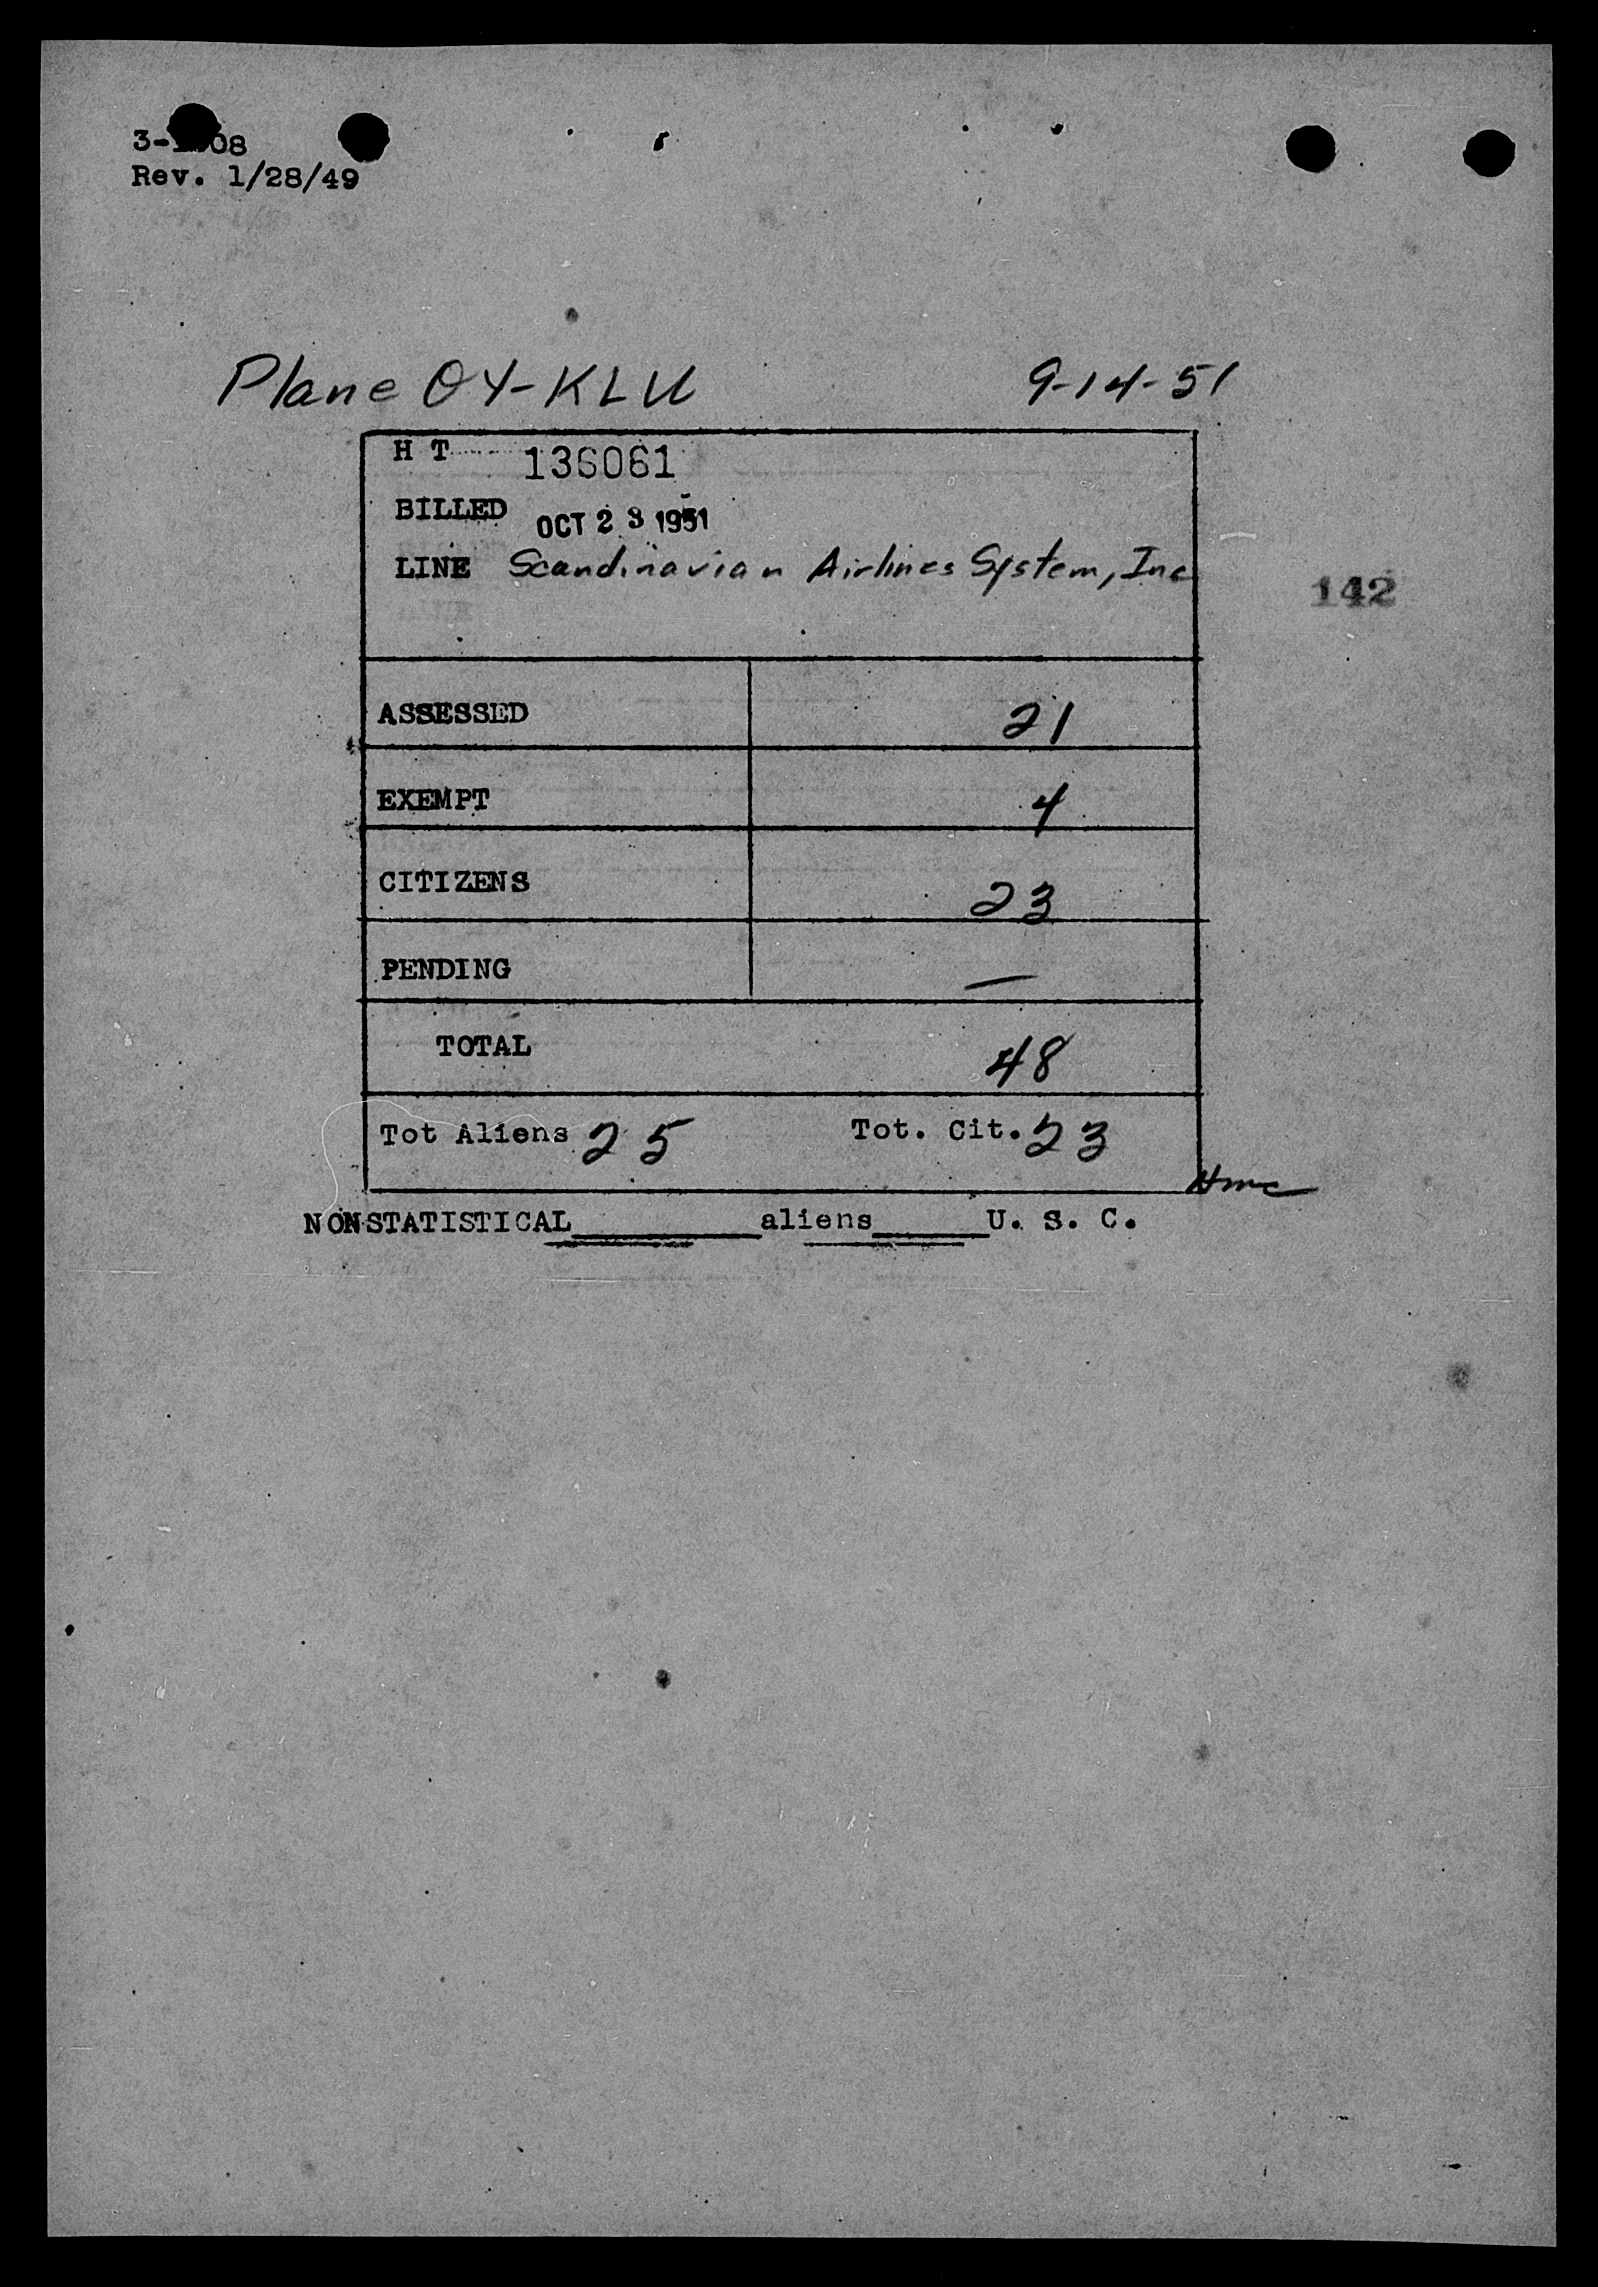 Rev. 1/28/49
Plane OY-KLU 9-14-51
H T 136061
BILLED OCT 23 1951
LINE Scandinavian Airlines System, Inc
142
ASSESSED 21
EXEMPT 4
CITIZENS 23
PENDING —
TOTAL 48
Tot Aliens 25 Tot. Cit. 23
NONSTATISTICAL aliens U. S. C.